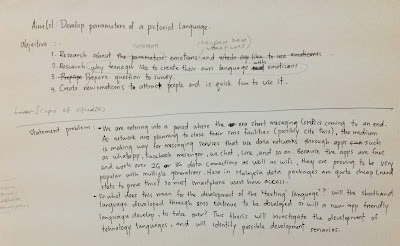 Aim(s): Develop parameters of a pictorial language.
Objective :
1. Research about the parameters emotions and which like to use emoticons.
2. Research why teenager like to create their own language with emoticons.
3. Propose Prepare question to survey.
4. Create new emotions to attract people and is quick fun to use it.
Scope of studies
Statement problem : - We are entering into a period where the era short messaging is coming to an end.
As network are planning to close their sms facilities (possibly cite this), the medium
is making way for messaging services that use data networks through apps such
as whatsapp, facebook messenger, we chat, Line, and so on. Because the apps are free
and work over 2G or 3G data connections as well as wifi, they are proving to be very
popular with multiple generations. Here in Malaysia data packages are quite cheap (need
stats to prove this) so most smartphone users have access.
- So what does this mean for the development of the "texting language"? will the shorthand
language developed through sms continue to be developed or will a new app friendly
language develop, to take over? This thesis will investigate the development of
technology languages, and will identify possible development scenarios.